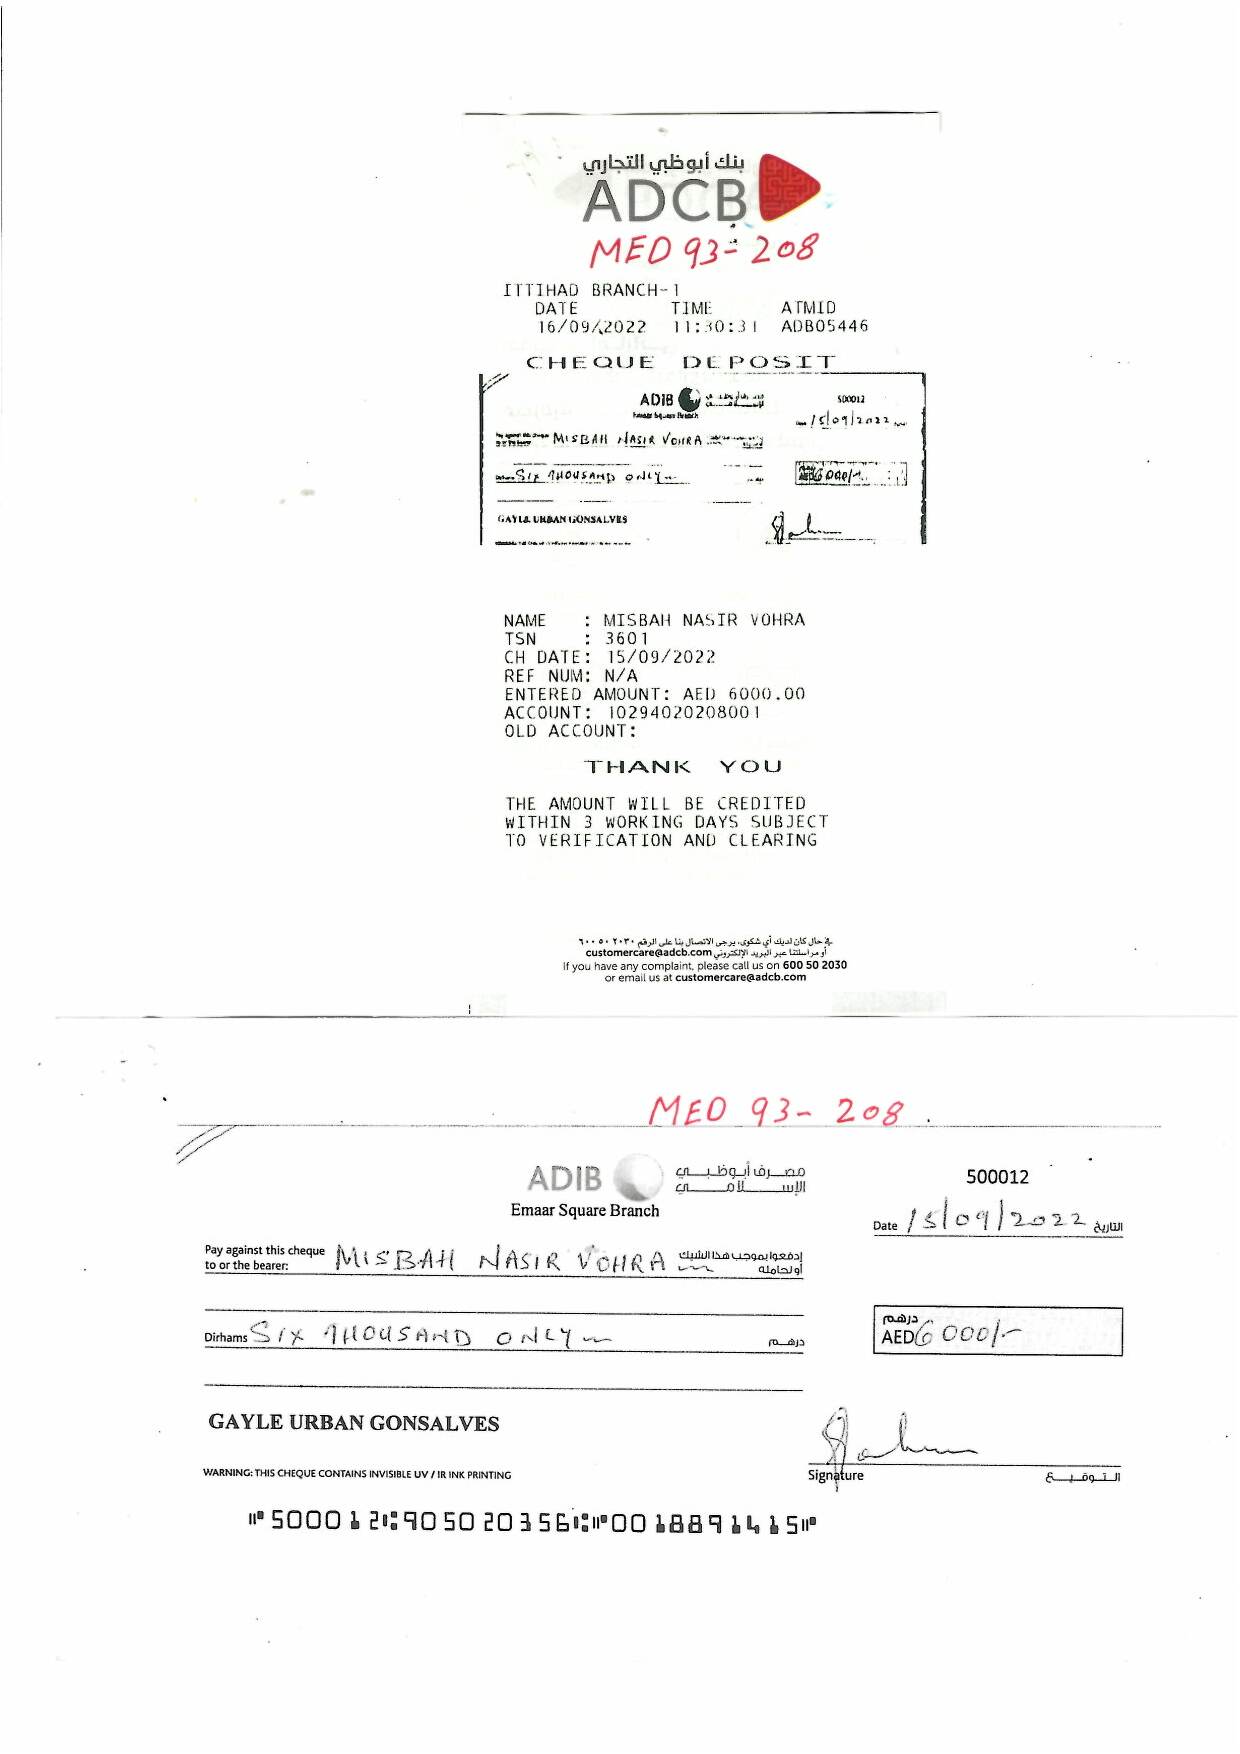 بنك أبوظبي التجاري
ADCB
MED 93-208
ITTIHAD BRANCH-1
DATE TIME ATMID
16/09/2022 11:30:31 ADB05446
CHEQUE DEPOSIT
ADIB
Emaar Square Branch
500012
15/09/2022
MISBAH NASIR VOHRA
SIX THOUSAND ONLY
6000/-
GAYLE URBAN GONSALVES
NAME : MISBAH NASIR VOHRA
TSN : 3601
CH DATE: 15/09/2022
REF NUM: N/A
ENTERED AMOUNT: AED 6000.00
ACCOUNT: 10294020208001
OLD ACCOUNT:
THANK YOU
THE AMOUNT WILL BE CREDITED
WITHIN 3 WORKING DAYS SUBJECT
TO VERIFICATION AND CLEARING
في حال كان لديك أي شكوى، يرجى الاتصال بنا على الرقم ٦٠٠ ٥٠ ٢٠٣٠
أو مراسلتنا عبر البريد الإلكتروني customercare@adcb.com
If you have any complaint, please call us on 600 50 2030
or email us at customercare@adcb.com
MED 93-208
ADIB مصرف أبوظبي
الإسلامي
500012
Emaar Square Branch
Date 15/09/2022 التاريخ
Pay against this cheque MISBAH NASIR VOHRA إدفعوا بموجب هذا الشيك
to or the bearer: أو لحامله
درهم
Dirhams SIX THOUSAND ONLY درهم
AED 6000/-
GAYLE URBAN GONSALVES
WARNING: THIS CHEQUE CONTAINS INVISIBLE UV / IR INK PRINTING
Signature التوقيع
⑈500012⑆905020356⑆⑈0018891415⑈